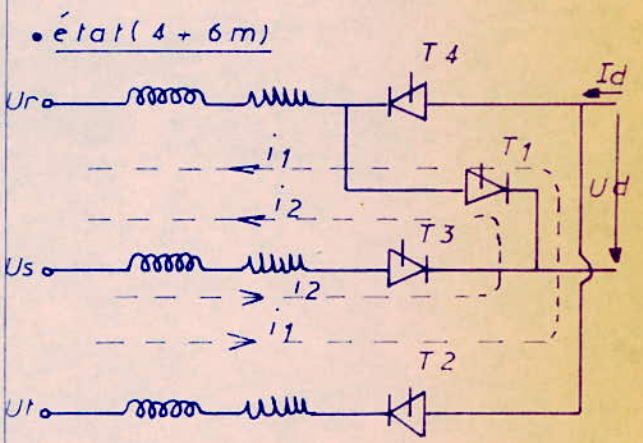 • état(4 + 6m)
T4
Id
Ur
i1
T1
Ud
i2
T3
Us
i2
i1
T2
Ut